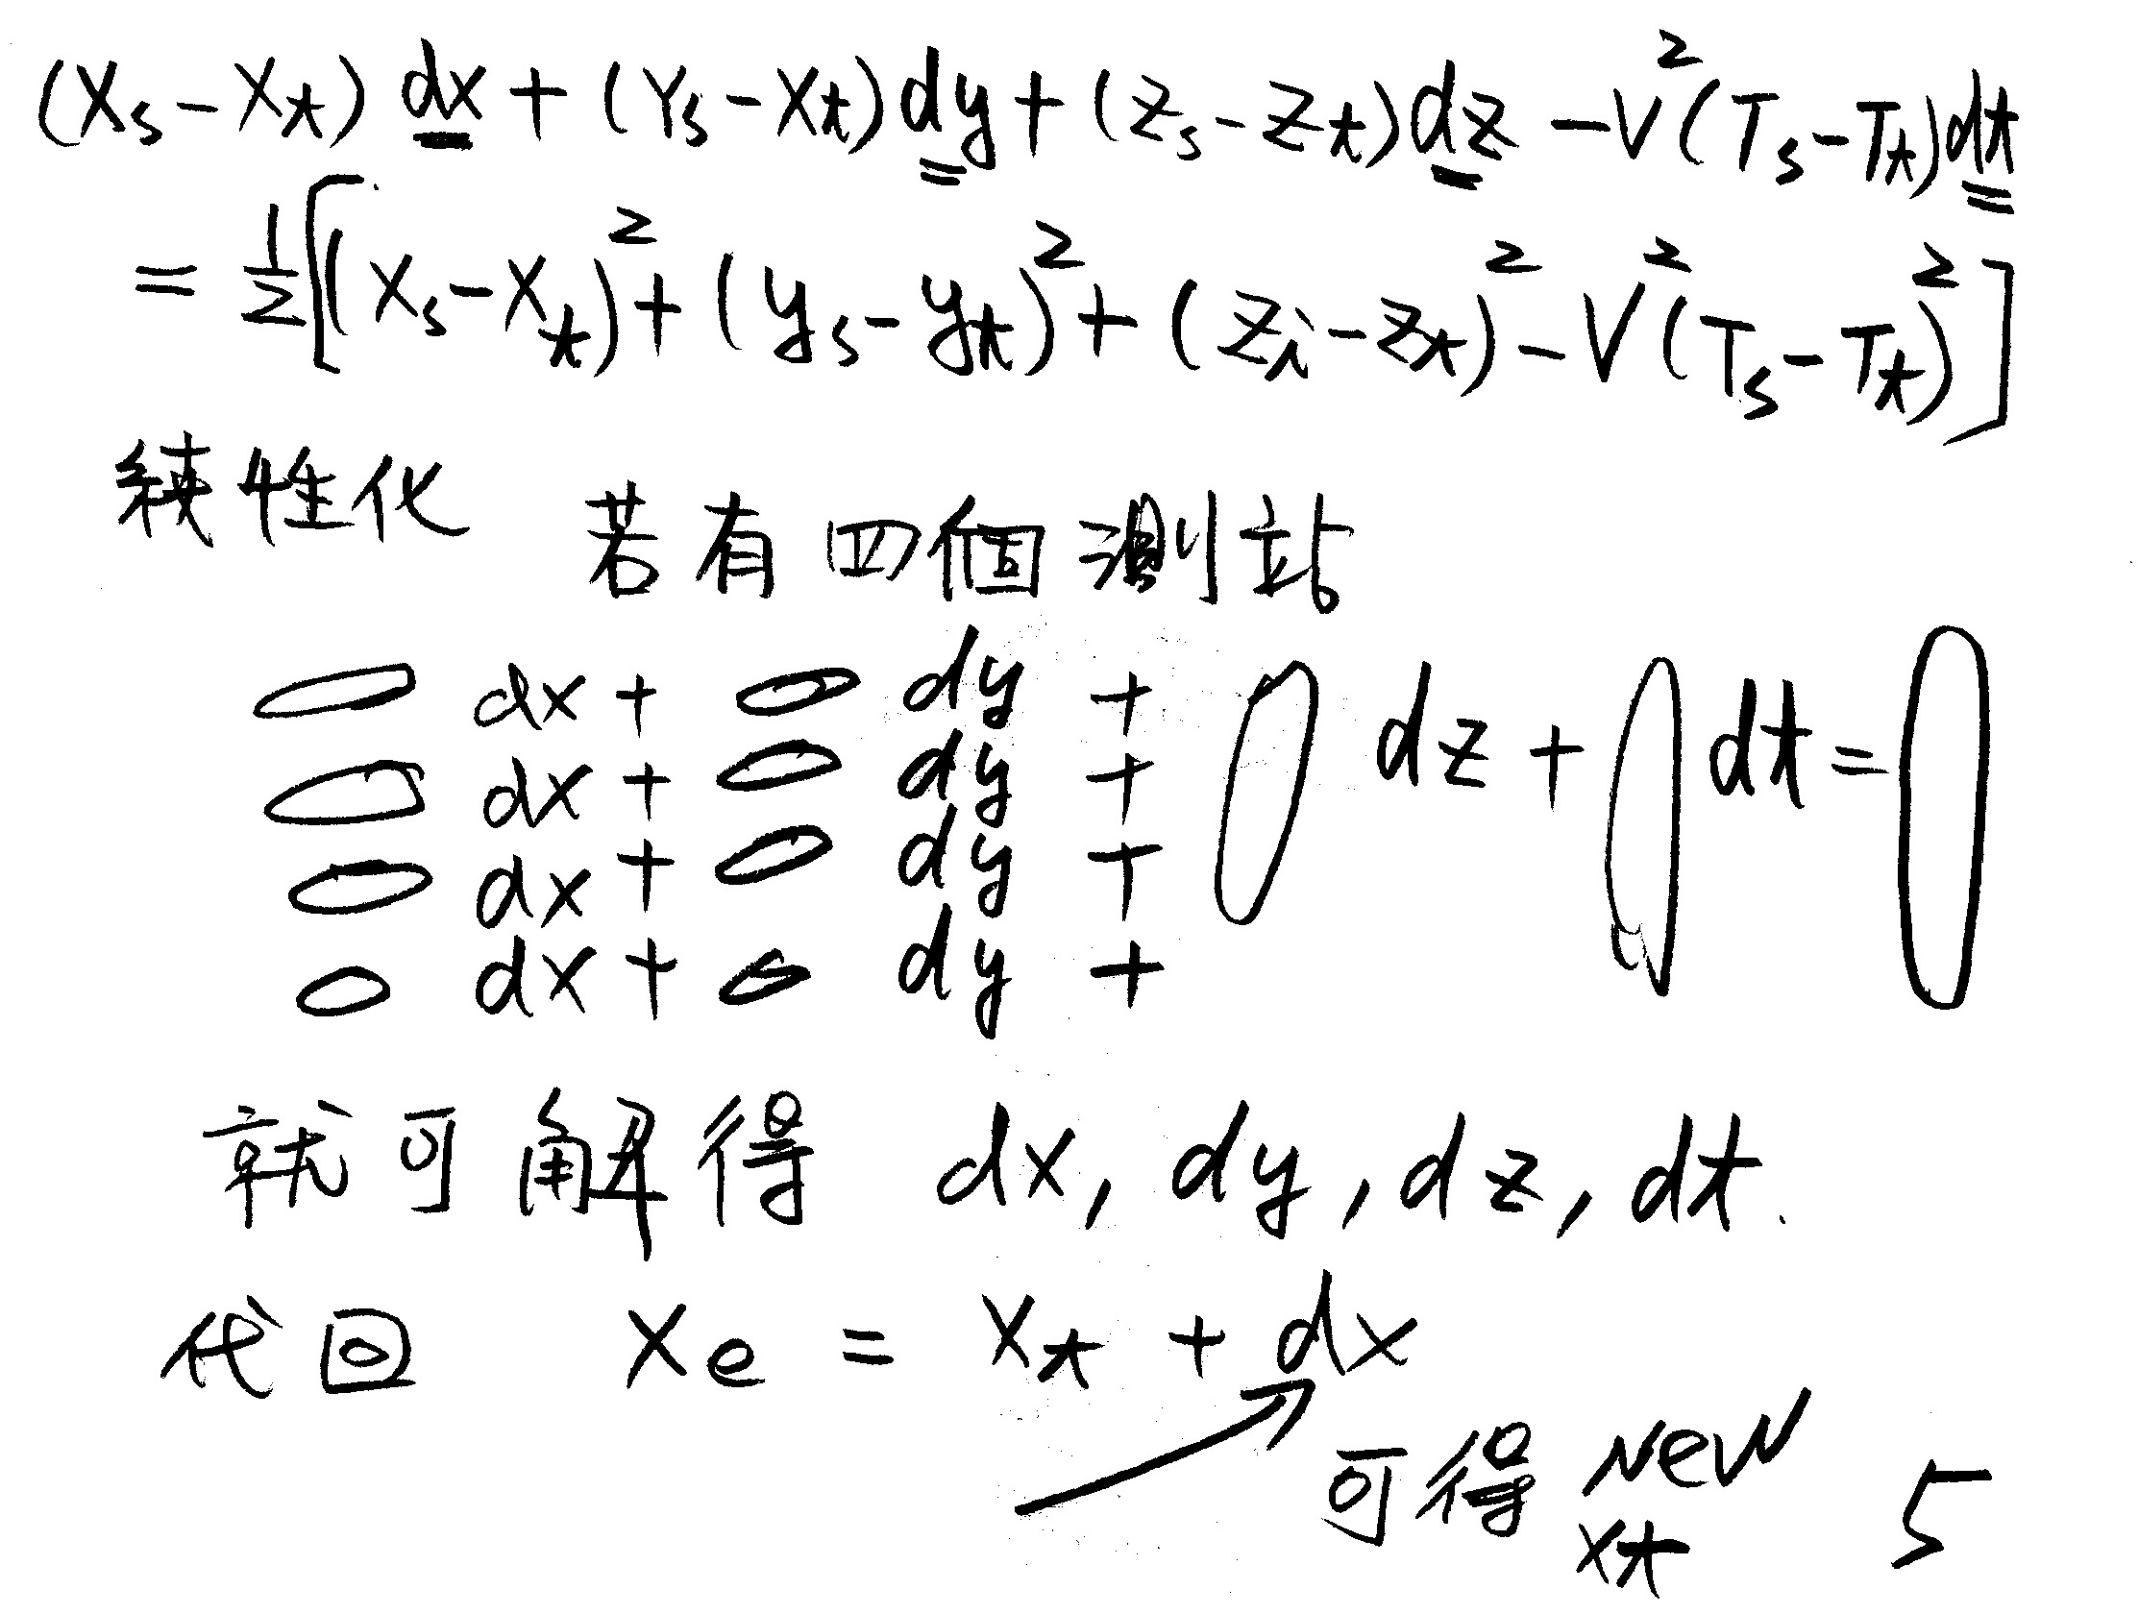 (Xs - Xt) dx + (Ys - Xt) dy + (Zs - Zt) dz - V²(Ts - Tt) dt
= 1/2 [(Xs - Xt)² + (ys - yt)² + (Zi - Zt)² - V²(Ts - Tt)²]
線性化 若有四個測站
dx + dy +
dx + dy + dz + dt =
dx + dy +
dx + dy +
就可解得 dx, dy, dz, dt.
代回 Xe = Xt + dx
可得 New
Xt
5